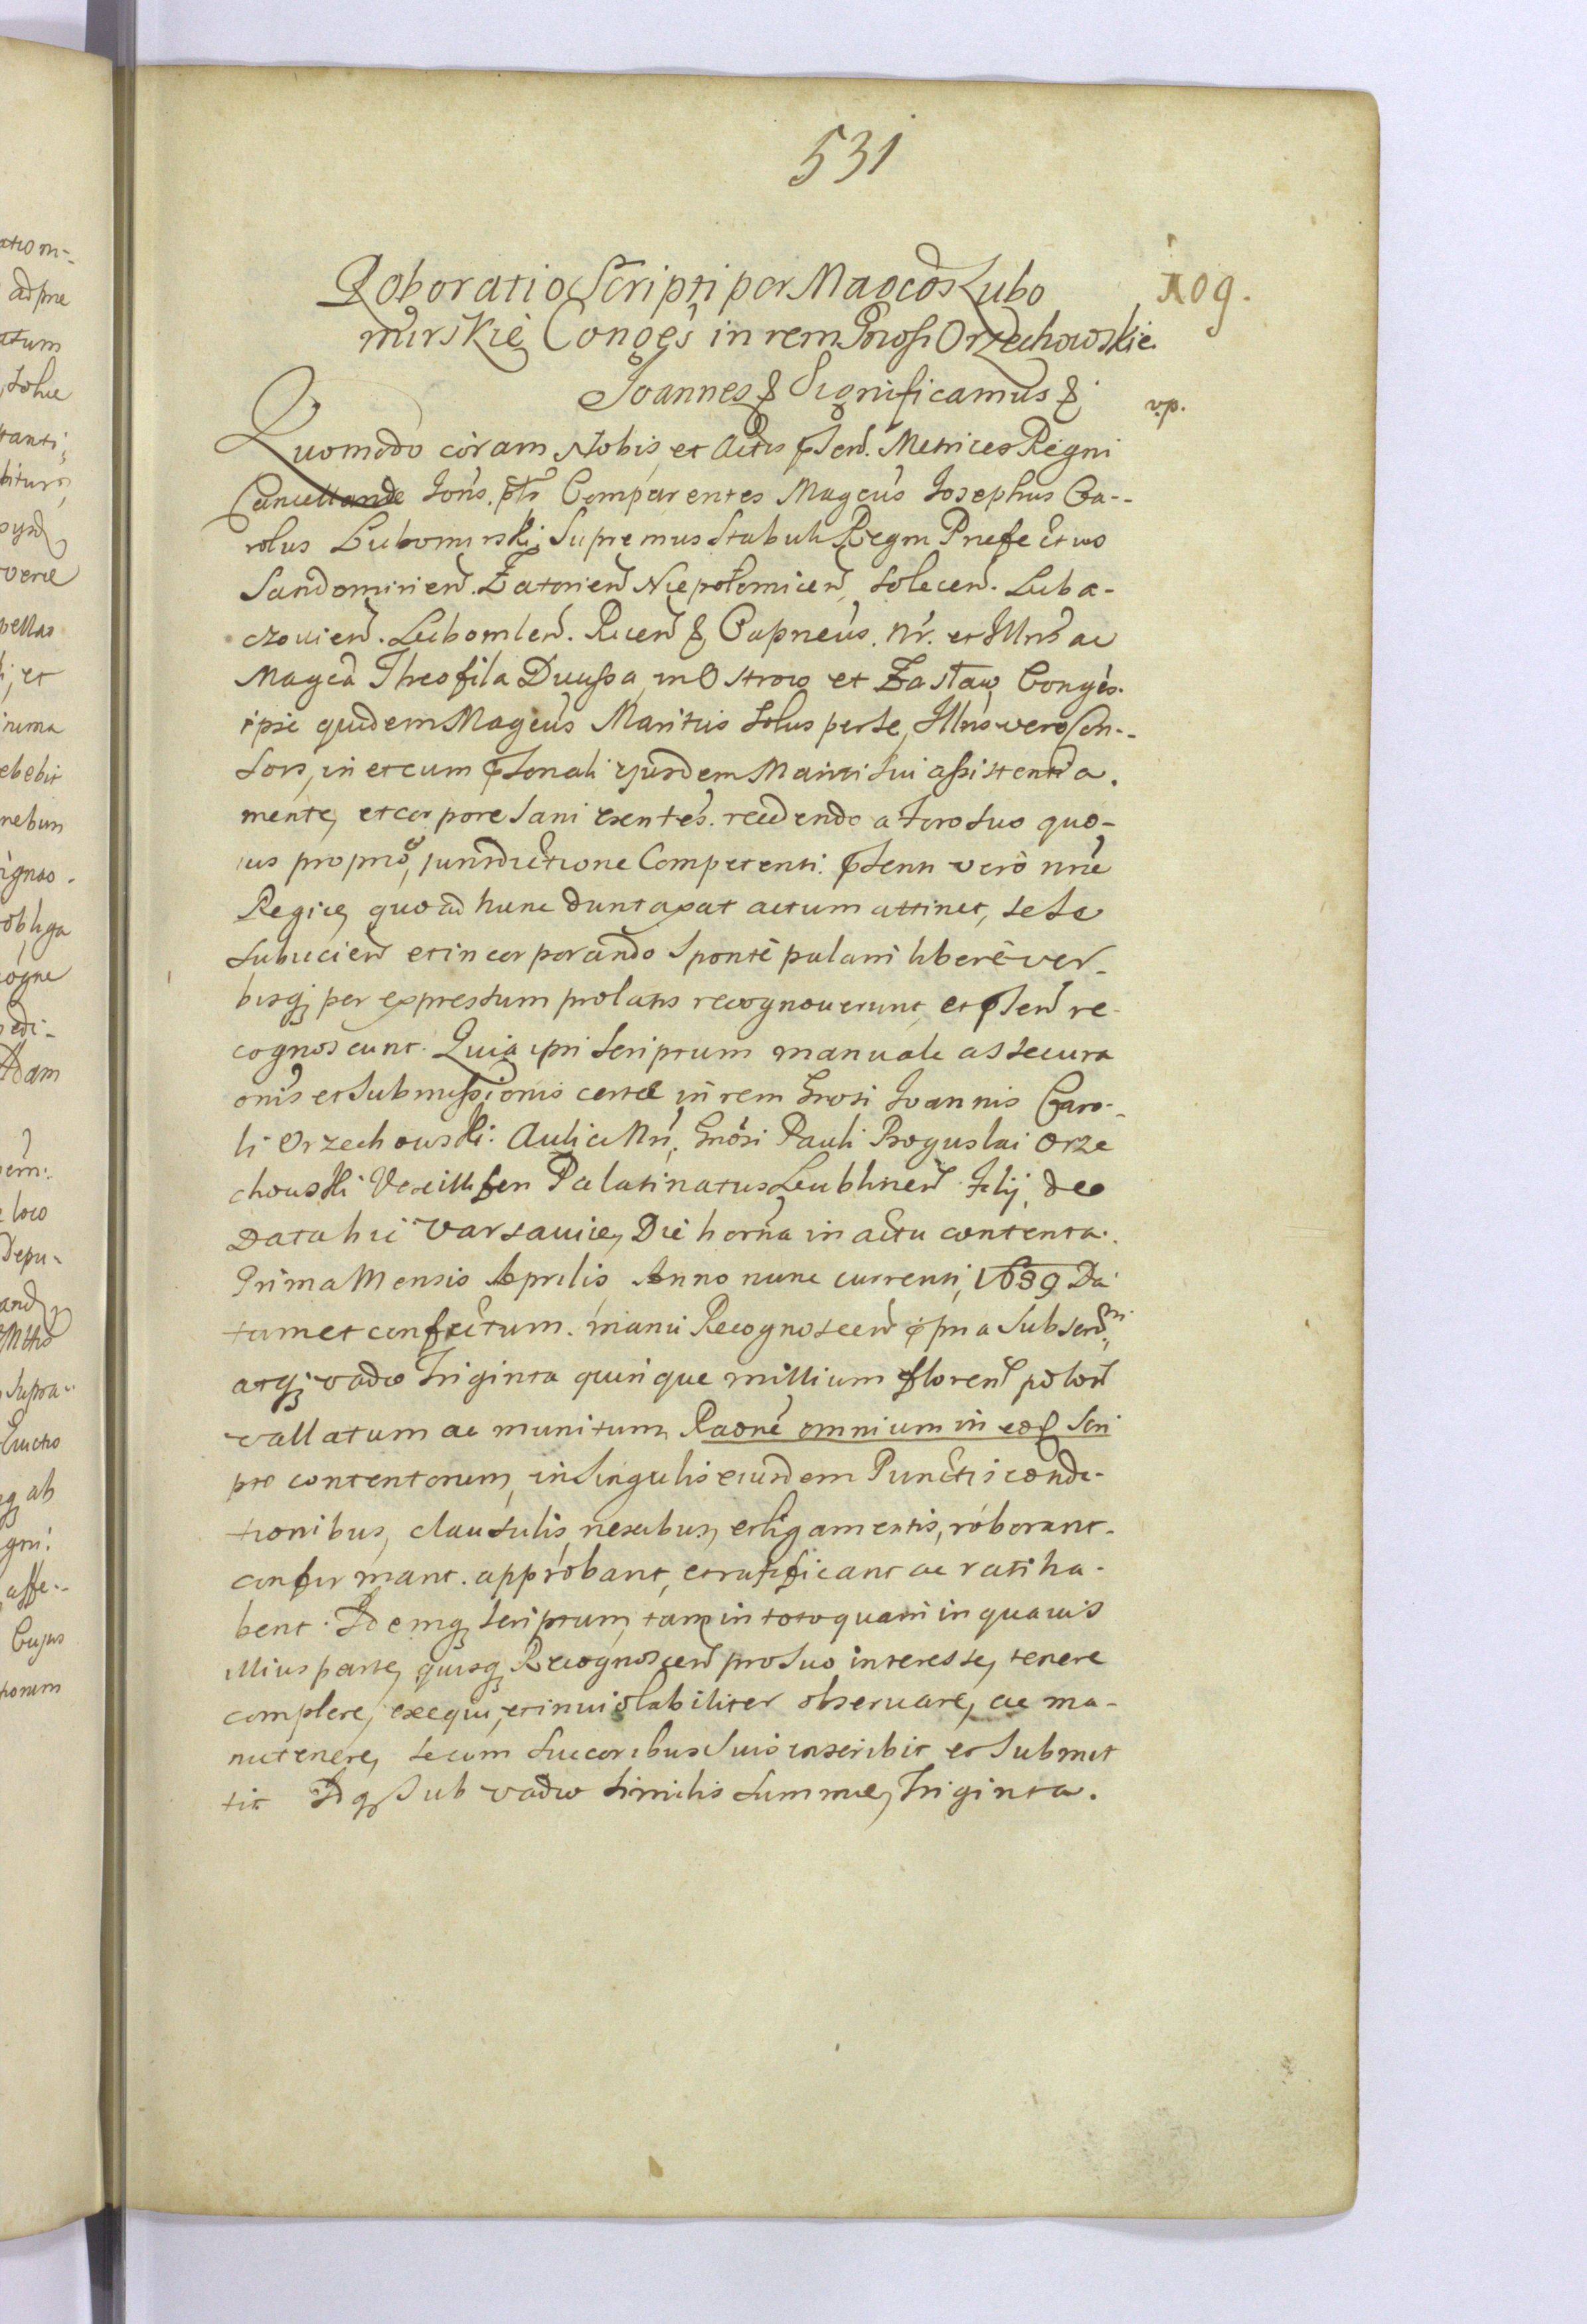 531
Roboratio Scripti per Magcos Lubo
mirskie Conges in rem Grosi Orzechowskie
109.
Joannes & Significamus &
v.p.
Quomodo coram Nobis et Actis pnsen. Metrices Regni
Cancellariae Comparentes Magcus Josephus Ca-
rolus Lubomirski, Supremus Stabuli Regni Praefectus
Sandomirien. Zatorien Niepołomicen, Solecen. Luba-
czovien. Lubomlen. Ricen & Capneus. Nr. et Illris ac
Magca Theofila Ducissa in Ostrow et Zasław Conges.
ipse quidem Magcus Maritus solus per se, Illris vero Con-
sors, in et cum psonali ejusdem Mariti sui assistentia.
mente, et corpore sani exentes. recedendo a foro suo quo-
vis proprio, jurisdictione Competenti. psenti vero nrae
Regiae, quoad hunc duntaxat actum attinet, sese
subijcien et incorporando sponte palam libere ver-
bisq per expressum prolatis recognoverunt, et psen re-
cognoscunt. Quia ipsi scriptum manuale assecura
onis et submissionis certae in rem Grosi Joannis Caro-
li Orzechowski: Aulici Nri, Grosi Pauli Boguslai Orze
chowski Vexilliferi Palatinatus Leublinen filij, de
Data hic Varsaviae, Die horna in actu contenta.
Prima Mensis Aprilis Anno nunc currenti, 1689 Da
tum et confectum. manu Recognoscen ppria subscrm
atq vadio Triginta quinque millium floren polon
vallatum ac munitum, Raone omnium in eod Scri
pto contentorum, in singulis eiusdem Punctis condi-
tionibus, clausulis, nexibus, et ligamentis, roborant.
confirmant. approbant, et ratificant ac ratiha-
bent. Idemq scriptum, tam in toto quam in quavis
illius parte, quisq Recognoscen pro suo interesse, tenere
complere, exequi, et inviolabiliter observare, ac ma-
nutenere, se cum succoribus suis inscribit et submit
tit Idq sub vadio similis summae, Triginta.